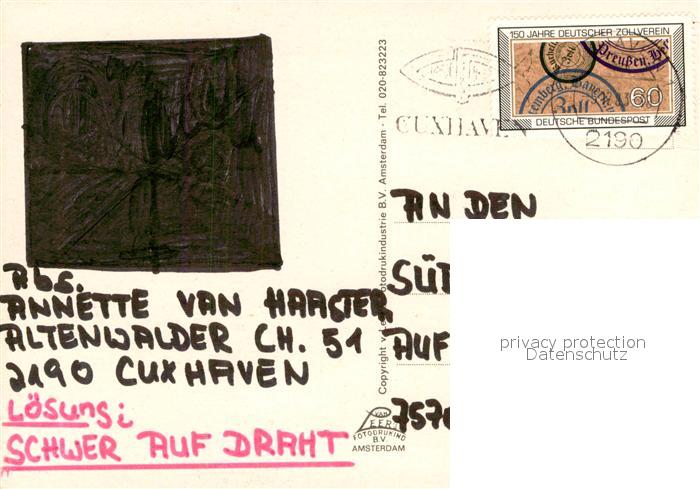 150 JAHRE DEUTSCHER ZOLLVEREIN
Preußen
Zoll
60
DEUTSCHE BUNDESPOST
CUXHAVEN
2190
Amsterdam · Tel. 020-823223
Copyright v Lee Fotodrukindustrie B.V.
AN DEN
SÜD
AUF
757
Abs.
ANNETTE VAN HAASTER
ALTENWALDER CH. 51
2190 CUXHAVEN
LÖSUNG:
SCHWER AUF DRAHT
VAN
LEER
FOTODRUKIND
B.V.
AMSTERDAM
privacy protection
Datenschutz